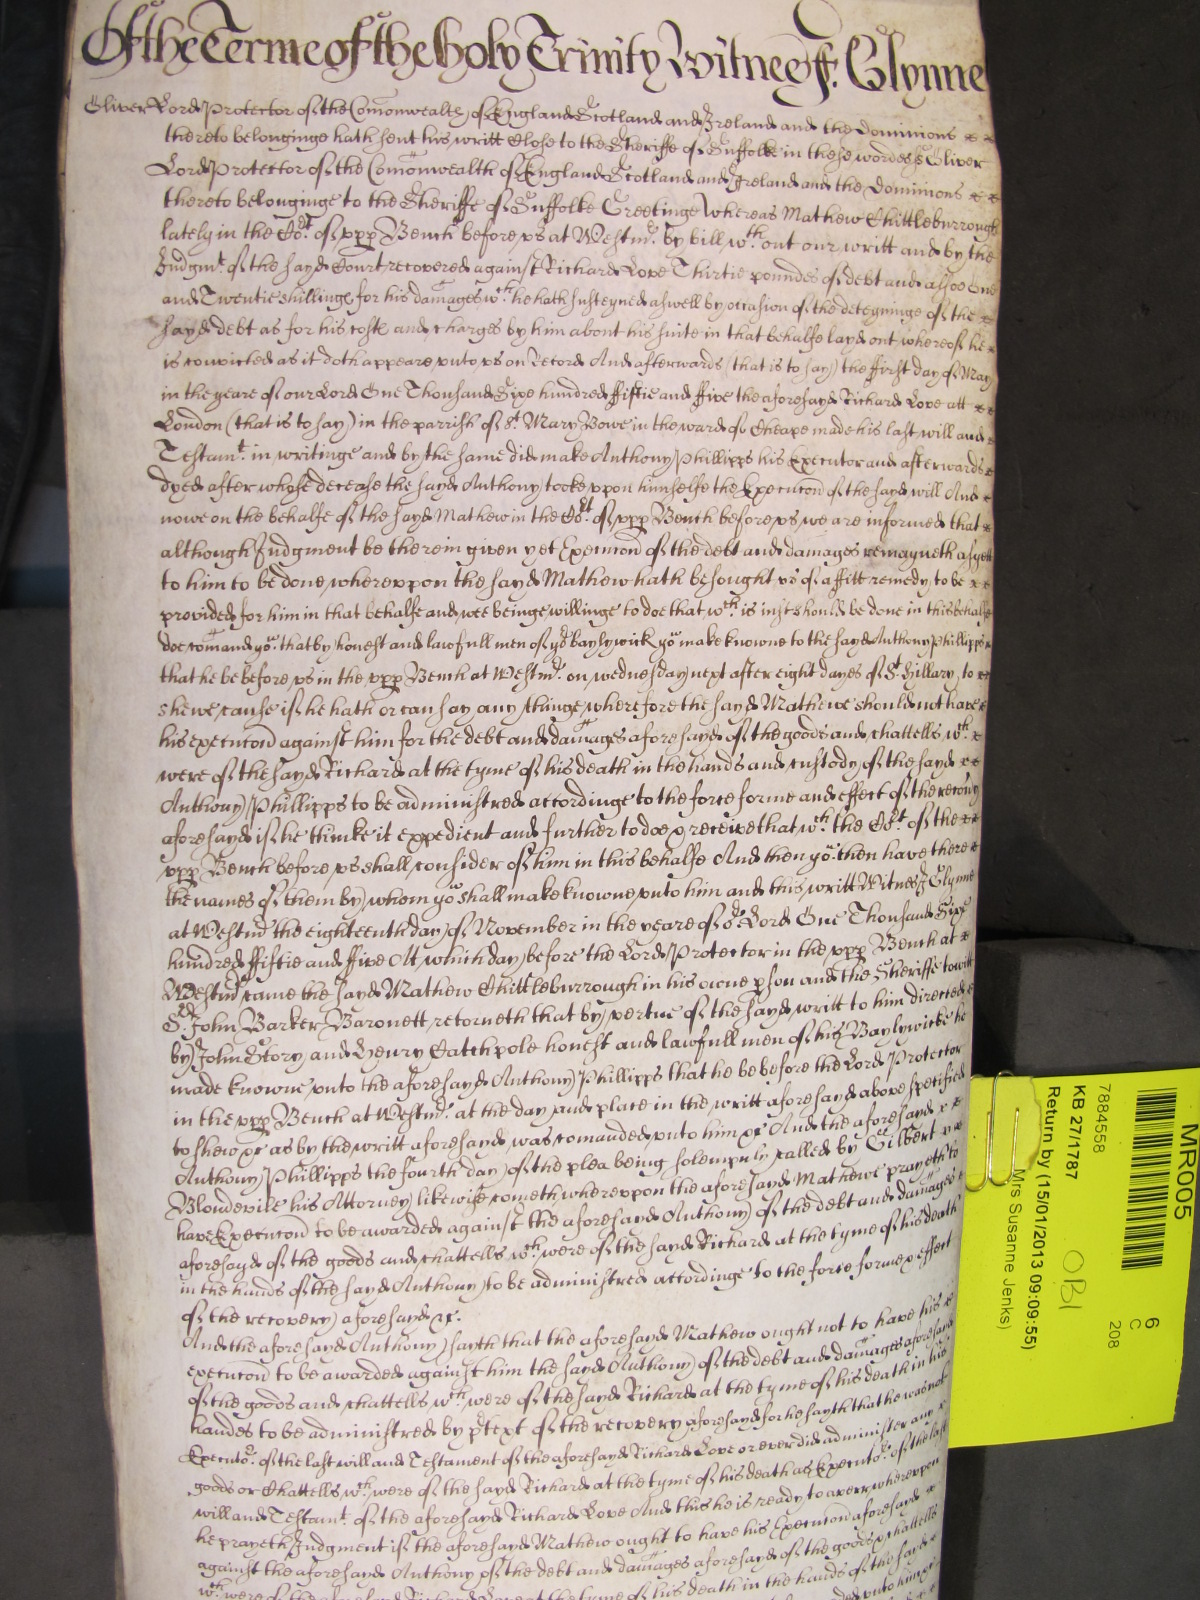 Of the Terme of the Holy Trinity Witnes J. Glynne
Oliver Lord Protector of the Comonwealth of England Scotland and Ireland and the Dominions
thereto belonginge hath sent his writt Close to the Sheriffe of Suffolke in these wordes ss Oliver
Lord Protector of the Comonwealth of England Scotland and Ireland and the Dominions
thereto belonginge to the Sheriffe of Suffolke Greetinge Whereas Mathew Chittleburrough
lately in the Cort of vpp Bench before vs at Westmr. by bill wth. out our writt and by the
Judgmt. of the sayd Court recovered against Richard Love Thirtie poundes of debt and alsoe One
and Twentie shillings for his damages wch. he hath susteyned aswell by occasion of the deteyninge of the
sayd debt as for his coste and charges by him about his suite in that behalfe layd out whereof he
is convicted as it doth appeare vnto vs on Record And afterwards (that is to say) the first day of May
in the yeare of our Lord One Thousand Sixe hundred fiftie and five the aforesayd Richard Love att
London (that is to say) in the parrish of St. Mary Bowe in the ward of Cheape made his last will and
Testamt. in writinge and by the same did make Anthony Phillipps his Executor and afterwards
dyed after whose decease the sayd Anthony tooke vpon himselfe the Execucon of the sayd will And
nowe on the behalfe of the sayd Mathew in the Cort. of vpp Bench before vs we are informed that
although Judgment be therein given yet Execucon of the debt and damages remayneth as yett
to him to be done wherevpon the sayd Mathew hath besought vs of a fitt remedy to be
provided for him in that behalfe and wee beinge willinge to doe that wch. is just should be done in this behalfe
doe comand yo. that by honest and lawfull men of yor baylywick yo make knowne to the sayd Anthony Phillipps
that he be before vs in the vpp Bench at Westmr. on wednesday next after eight dayes of St. Hillary to
shewe cause if he hath or can say any thinge wherefore the sayd Mathewe should not have
his execucon against him for the debt and damages aforesayd of the goods and chattells wch.
were of the sayd Richard at the tyme of his death in the hands and custody of the sayd
Anthony Phillipps to be administred accordinge to the force forme and effect of the recovy
aforesayd if he thinke it expedient and further to doe & receive that wch. the Cort. of the
vpp Bench before vs shall consider of him in this behalfe And then yo. then have there
the names of them by whom yo shall make knowne vnto him and this writt Witnes J Glynne
at Westmr the eighteenth day of November in the yeare of or Lord One Thousand Sixe
hundred fiftie and five Att which day before the Lord Protector in the vpp Bench at
Westmr came the sayd Mathew Chittleburrough in his owne pson and the Sheriffe towitt
Sr. John Barker Baronett retorneth that by vertue of the sayd writt to him directed
by John Story and Henry Catchpole honest and lawfull men of his Baylywicke he
made knowne vnto the aforesayd Anthony Phillipps that he be before the Lord Protector
in the vpp Bench at Westmr. at the day and place in the writt aforesayd above specified
to shew &c as by the writt aforesayd was comanded vnto him &c And the aforesayd
Anthony Phillipps the fourth day of the plea being solempnly called by Gilbert
Blondevile his Attorney likewise cometh wherevpon the aforesayd Mathewe prayeth to
have Execucon to be awarded against the aforesayd Anthony of the debt and damages
aforesayd of the goods and chattells wch. were of the sayd Richard at the tyme of his death
in the hands of the sayd Anthony to be administred accordinge to the force forme & effect
of the recovery aforesayd &c.
And the aforesayd Anthony sayth that the aforesayd Mathew ought not to have his
execucon to be awarded against him the sayd Anthony of the debt and damages aforesayd
of the goods and chattells wch. were of the sayd Richard at the tyme of his death in his
handes to be administred by ptext of the recovery aforesayd for he sayth that he was not
Executor. of the last will and Testament of the aforesayd Richard Love or ever did administer any
goods or Chattells wch. were of the sayd Richard at the tyme of his death as Executor. of the last
will and Testamt. of the aforesayd Richard Love And this he is ready to averr wherevpon
he prayeth Judgment if the aforesayd Mathew ought to have his Execucon aforesayd
against the aforesayd Anthony of the debt and damages aforesayd of the goods & chattells
wch. were of the aforesayd Richard Love at the tyme of his death in the hands of the sayd
MR005
6
C
208
7884558
KB 27/1787
OBI
Return by (15/01/2013 09:09:55)
Mrs Susanne Jenks)